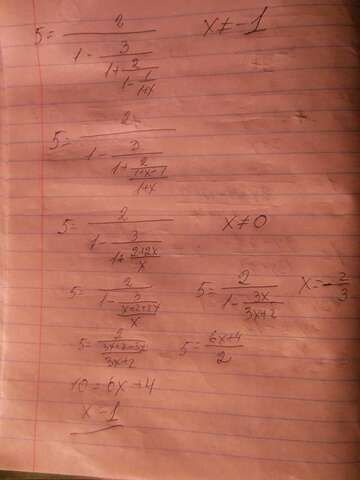 5 = 2/(1 - 3/(1 + 2/(1 - 1/(1+x)))) x ≠ -1
5 = 2/(1 - 3/(1 + 2/((1+x-1)/(1+x))))
5 = 2/(1 - 3/(1 + (2+2x)/x)) x ≠ 0
5 = 2/(1 - 3/((x+2+2x)/x)) 5 = 2/(1 - 3x/(3x+2)) x = -2/3
5 = 2/((3x+2-3x)/(3x+2)) 5 = (6x+4)/2
10 = 6x + 4
x - 1